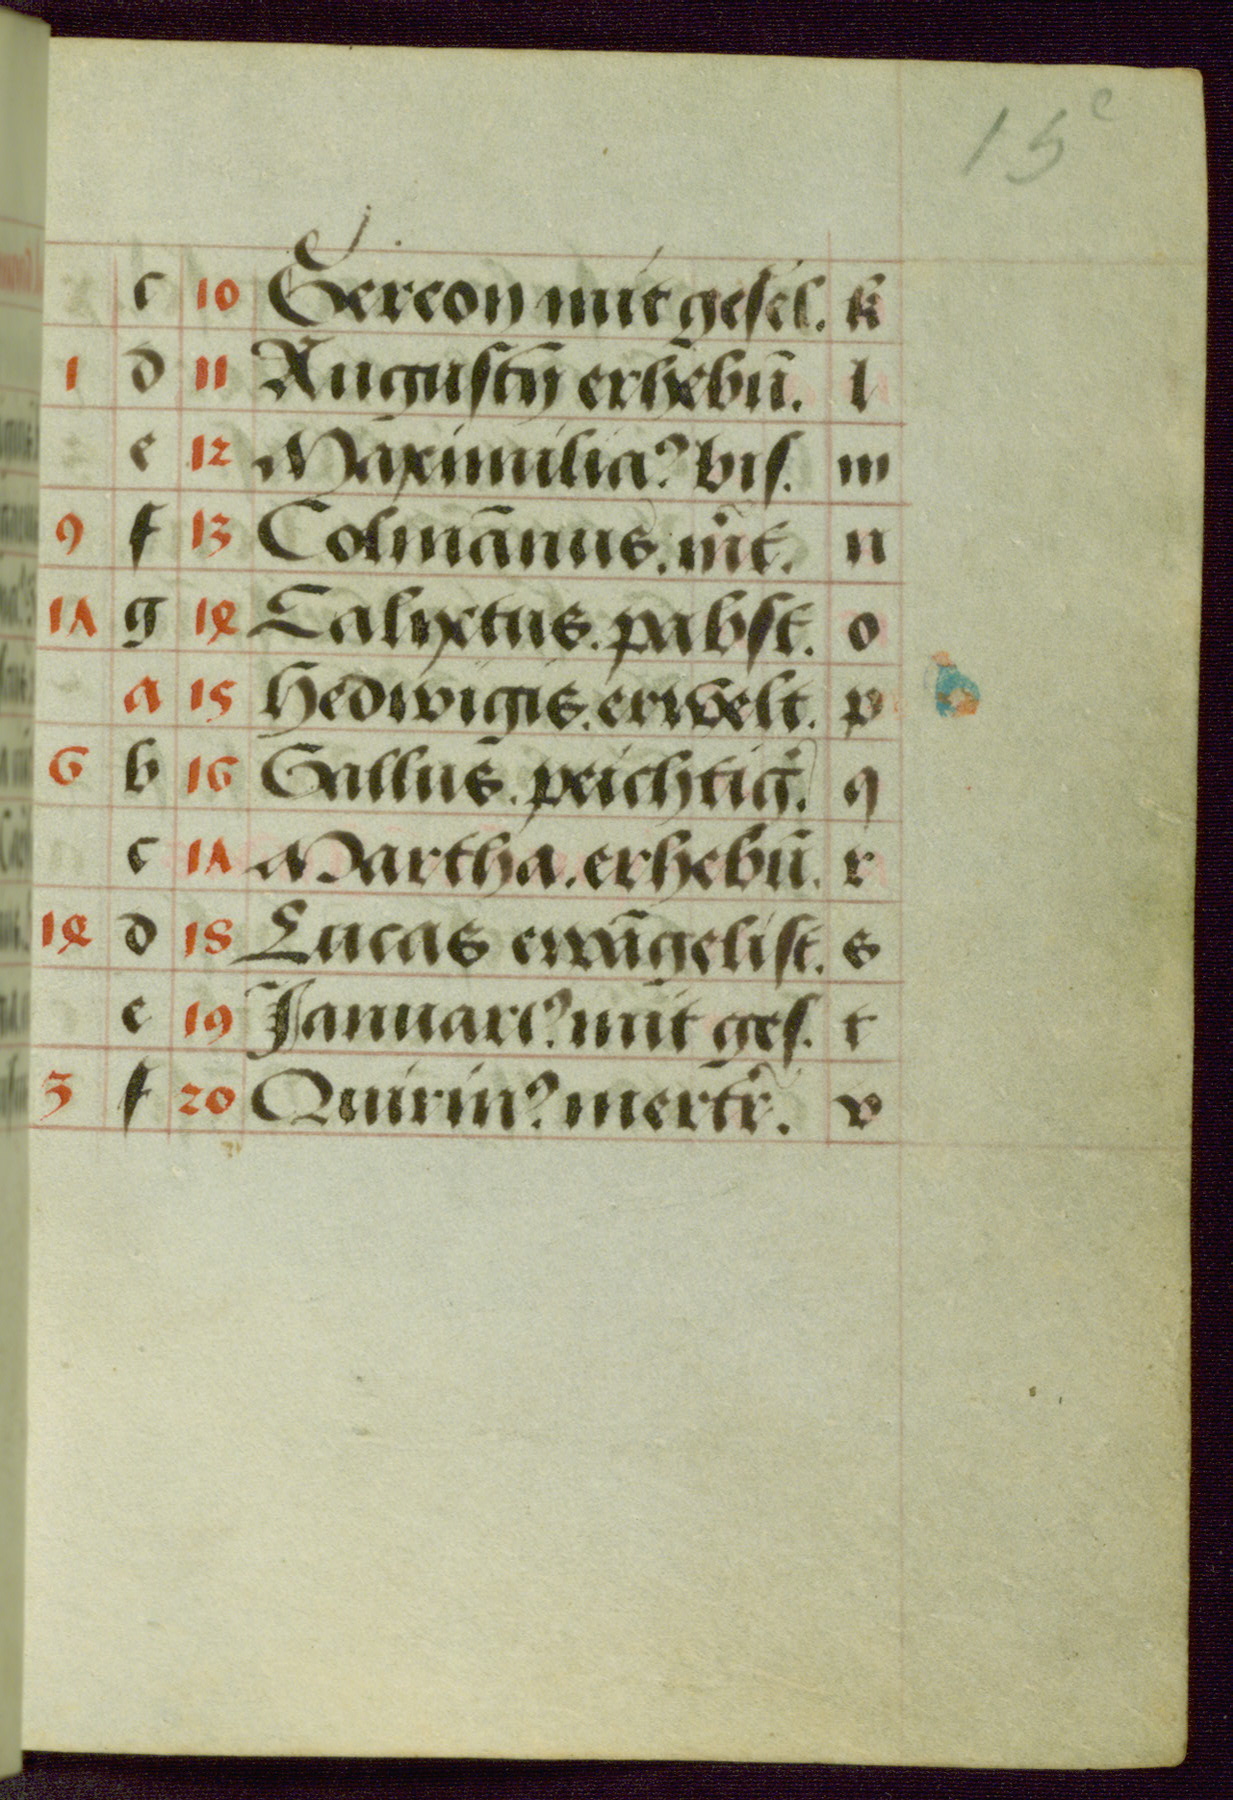 15 e
c 10 Gereon mit gesel. k
1 d 11 Augustin erhebũ. l
e 12 Maximilia⁹ bis. m
9 f 13 Colmãnus. m̃t. n
1Λ g 1ꝝ Calixtus. pabst. o
a 15 Hedwigis. erwelt. p
6 b 16 Gallus. peichtig̃. q
c 1Λ Martha. erhebũ. r
1ꝝ d 18 Lucas ewãgelist. s
e 19 Januari⁹ mit ges. t
3 f 20 Quirin⁹ mertr̃. v